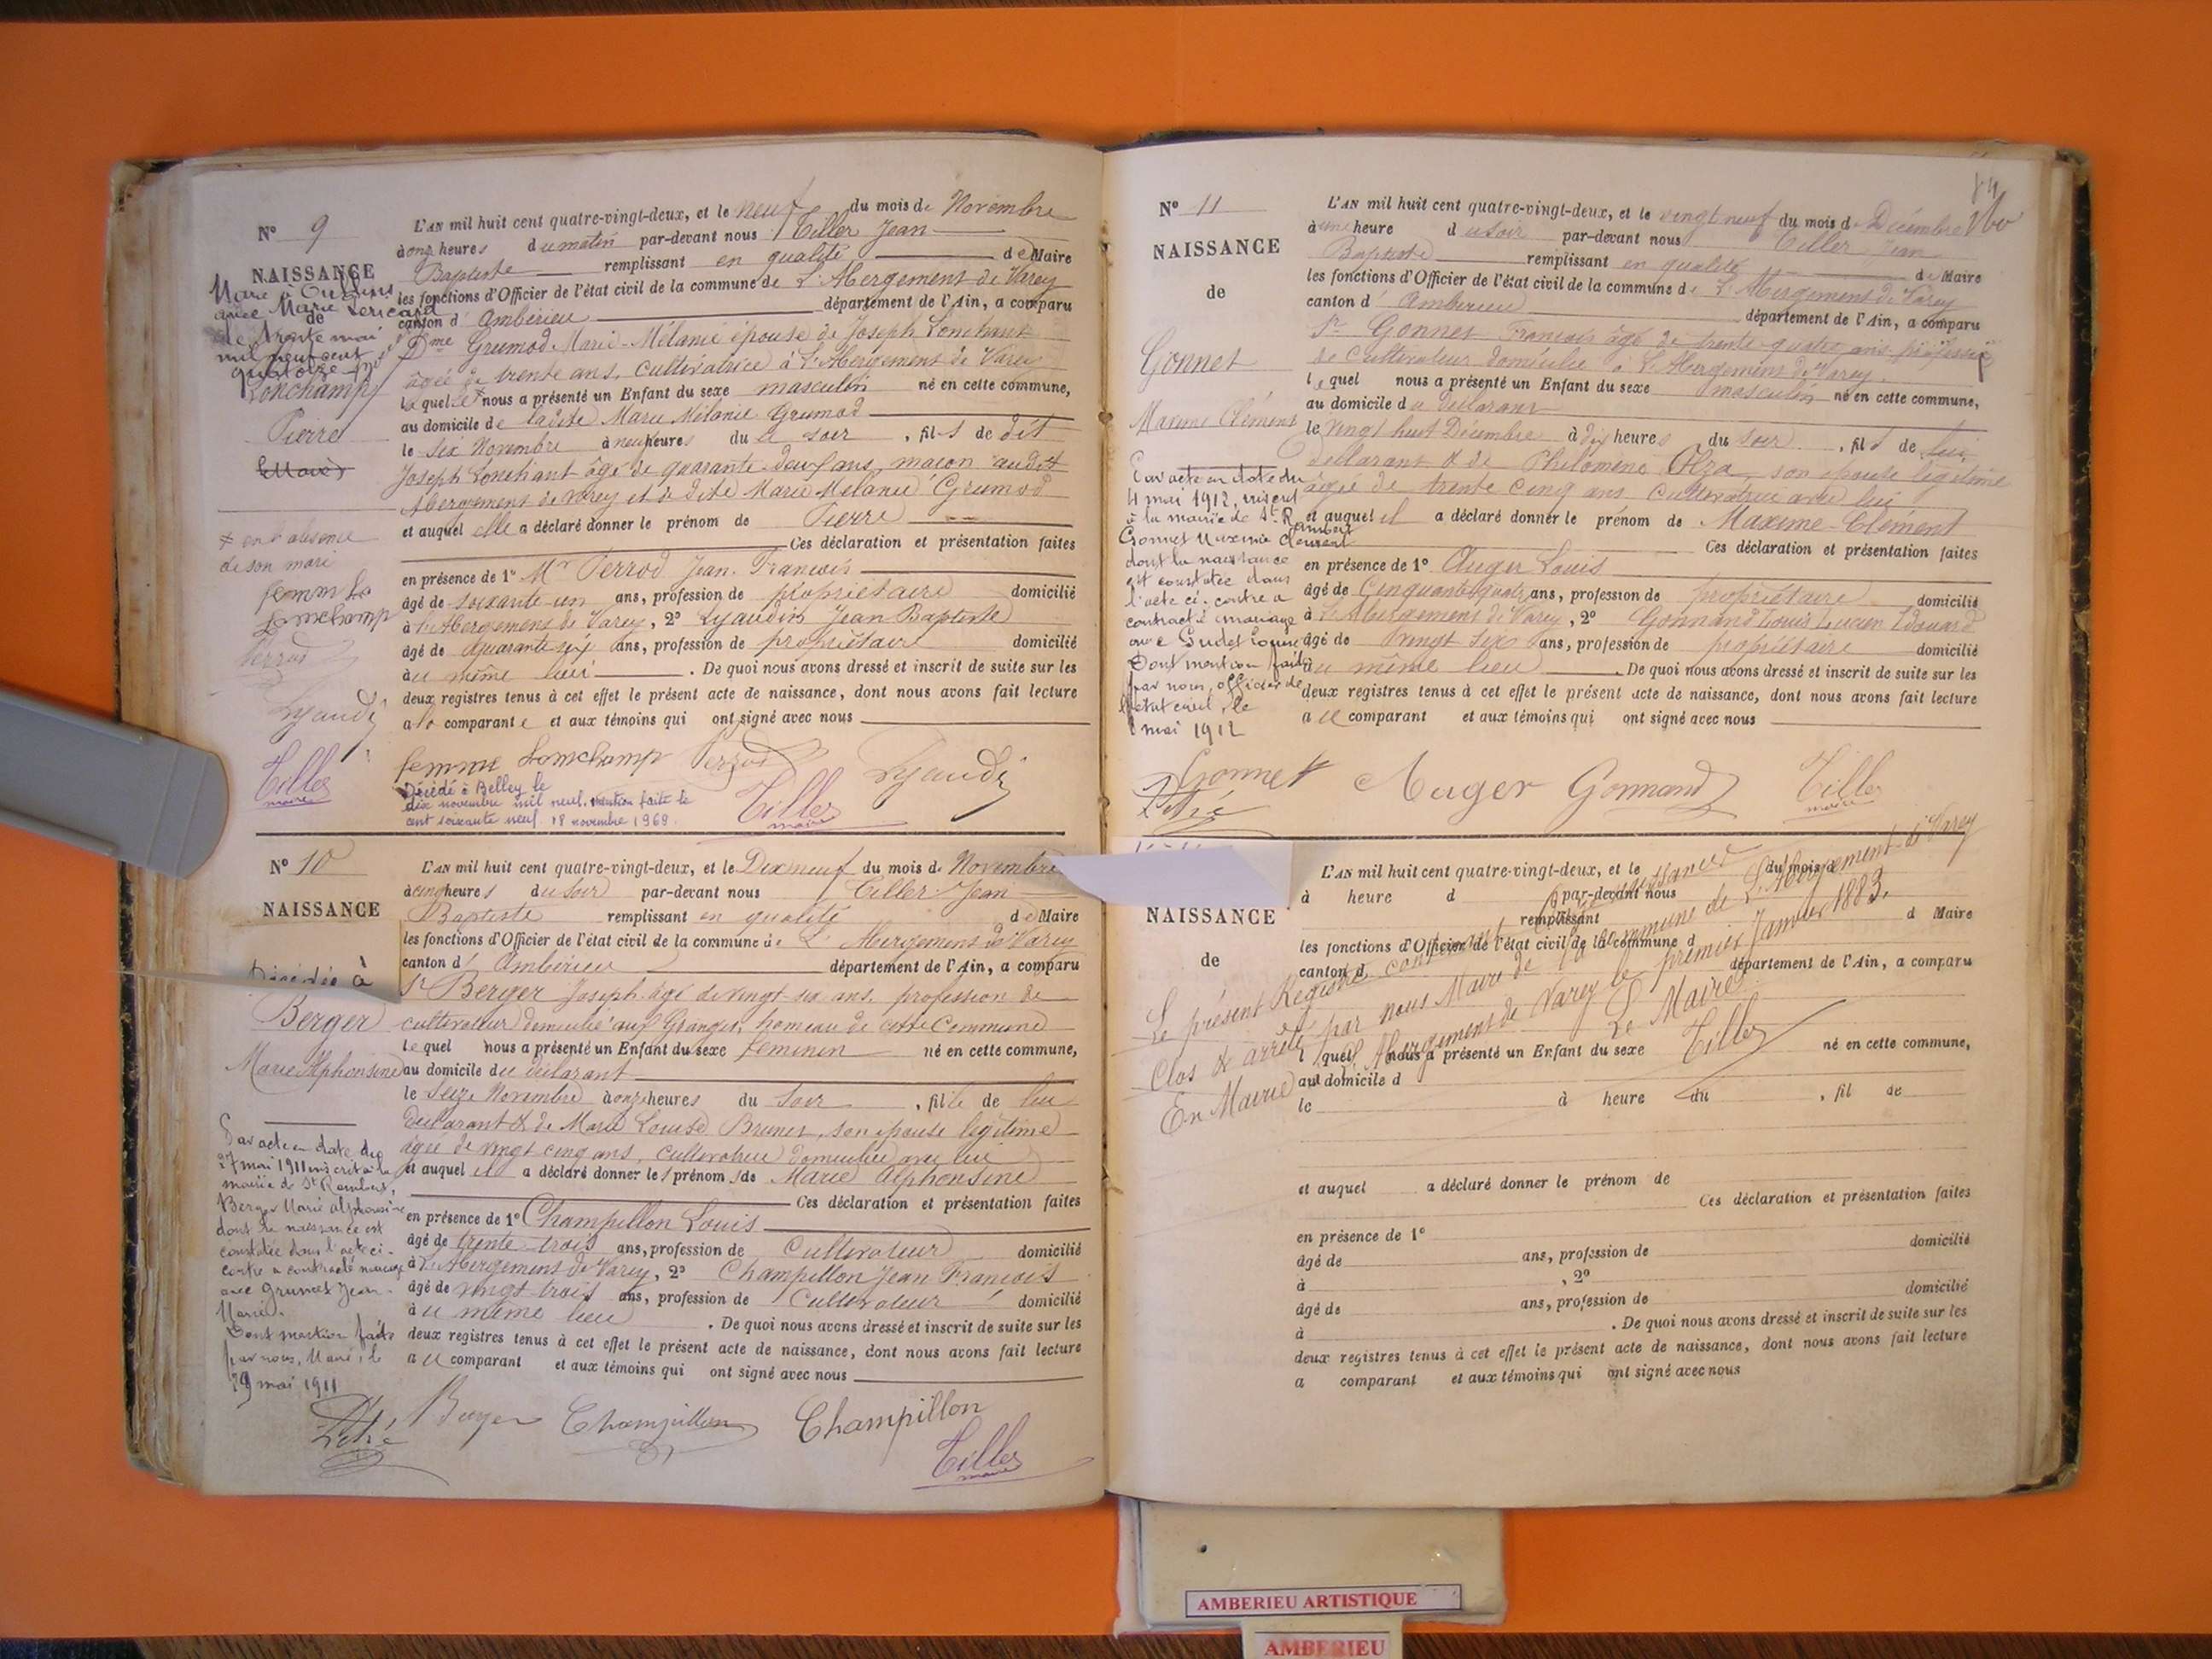 N° 9
NAISSANCE
de
Marié à Oullins
avec Marie
le trente mai
mil neuf cent
quatorze
Lonchamp
Pierre
en l'absence
de son mari
femme
Lonchamp
Perrod
Lyaudin
Tiller
maire
L'AN mil huit cent quatre-vingt-deux, et le neuf du mois de Novembre
à onze heures du matin par-devant nous Tiller Jean
Baptiste remplissant en qualité de Maire
les fonctions d'Officier de l'état civil de la commune de L'Abergement de Varey
canton d'Ambérieu département de l'Ain, a comparu
Dme Grumod Marie-Mélanie épouse de Joseph Lonchant
âgée de trente ans, cultivatrice à L'Abergement de Varey
laquelle nous a présenté un Enfant du sexe masculin né en cette commune,
au domicile de ladite Marie Mélanie Grumod
le six Novembre à neuf heures du soir, fils de dit
Joseph Lonchant âgé de quarante-deux ans, maçon audit
Abergement de Varey et de dite Marie Mélanie Grumod
et auquel elle a déclaré donner le prénom de Pierre
Ces déclaration et présentation faites
en présence de 1° Mr Perrod Jean-François
âgé de soixante-un ans, profession de propriétaire domicilié
à l'Abergement de Varey, 2° Lyaudin Jean Baptiste
âgé de quarante six ans, profession de propriétaire domicilié
au même lieu. De quoi nous avons dressé et inscrit de suite sur les
deux registres tenus à cet effet le présent acte de naissance, dont nous avons fait lecture
a la comparante et aux témoins qui ont signé avec nous
femme Lomchamp Perrod Lyaudin
Décédé à Belley le
dix novembre mil neuf
cent soixante neuf. mention faite le
18 novembre 1969.
Tiller
maire
N° 10
NAISSANCE
Décédée à
Berger
Marie Alphonsine
Par acte en date du
27 mai 1911 inscrit à la
mairie de St Rambert,
Berger Marie Alphonsine
dont la naissance est
constatée dans l'acte ci-
contre a contracté mariage
avec Grumet Jean-
Marie.
Dont mention faite
par nous, Maire, le
29 mai 1911
L'AN mil huit cent quatre-vingt-deux, et le Dix neuf du mois de Novembre
à cinq heures du soir par-devant nous Tiller Jean
Baptiste remplissant en qualité de Maire
les fonctions d'Officier de l'état civil de la commune de L'Abergement de Varey
canton d'Ambérieu département de l'Ain, a comparu
Sr Berger Joseph âgé de vingt six ans, profession de
cultivateur domicilié aux Granges, hameau de cette Commune
lequel nous a présenté un Enfant du sexe féminin né en cette commune,
au domicile du déclarant
le seize Novembre à onze heures du soir, fille de lui
déclarant & de Marie Louise Brunet, son épouse légitime
âgée de vingt cinq ans, cultivatrice domiciliée avec lui
et auquel il a déclaré donner les prénoms de Marie Alphonsine
Ces déclaration et présentation faites
en présence de 1° Champillon Louis
âgé de trente-trois ans, profession de Cultivateur domicilié
à L'Abergement de Varey, 2° Champillon Jean François
âgé de vingt trois ans, profession de Cultivateur domicilié
au même lieu. De quoi nous avons dressé et inscrit de suite sur les
deux registres tenus à cet effet le présent acte de naissance, dont nous avons fait lecture
au comparant et aux témoins qui ont signé avec nous
Berger Champillon Champillon
Tiller
maire
N° 11
NAISSANCE
de
Gonnet
Maxime Clément
Par acte en date du
4 mai 1912, inscrit
à la mairie de St Rambert
Gonnet Maxime Clément
dont la naissance
est constatée dans
l'acte ci-contre a
contracté mariage
avec Gudet Louise
Dont mention faite
par nous, officier de
l'état civil, le
mai 1912
L'AN mil huit cent quatre-vingt-deux, et le vingt neuf du mois de Décembre
à une heure du soir par-devant nous Tiller Jean
Baptiste remplissant en qualité de Maire
les fonctions d'Officier de l'état civil de la commune de L'Abergement de Varey
canton d'Ambérieu département de l'Ain, a comparu
Sr Gonnet François âgé de trente-quatre ans profession
de cultivateur domicilié à L'Abergement de Varey
lequel nous a présenté un Enfant du sexe masculin né en cette commune,
au domicile du déclarant
le vingt huit Décembre à dix heures du soir, fils de lui
déclarant & de Philomène son épouse légitime
âgée de trente cinq ans cultivatrice avec lui
et auquel il a déclaré donner le prénom de Maxime-Clément
Ces déclaration et présentation faites
en présence de 1° Auger Louis
âgé de Cinquante quatre ans, profession de propriétaire domicilié
à L'Abergement de Varey, 2° Gonnand Louis Lucien Edouard
âgé de vingt six ans, profession de propriétaire domicilié
au même lieu. De quoi nous avons dressé et inscrit de suite sur les
deux registres tenus à cet effet le présent acte de naissance, dont nous avons fait lecture
au comparant et aux témoins qui ont signé avec nous
Gonnet Auger Gonnand Tiller
maire
NAISSANCE
de
L'AN mil huit cent quatre-vingt-deux, et le du mois d
à heure d par-devant nous
remplissant d Maire
les fonctions d'Officier de l'état civil de la commune d
canton d département de l'Ain, a comparu
l quel nous a présenté un Enfant du sexe né en cette commune,
au domicile d
le à heure du , fil de
et auquel a déclaré donner le prénom de
Ces déclaration et présentation faites
en présence de 1°
âgé de ans, profession de domicilié
à , 2°
âgé de ans, profession de domicilié
à . De quoi nous avons dressé et inscrit de suite sur les
deux registres tenus à cet effet le présent acte de naissance, dont nous avons fait lecture
a comparant et aux témoins qui ont signé avec nous
Le présent Registre contenant naissances
Clos & arrêté par nous Maire de la commune de L'Abergement de Varey
En Mairie à L'Abergement de Varey le premier Janvier 1883.
Le Maire
Tiller
AMBERIEU ARTISTIQUE
AMBERIEU